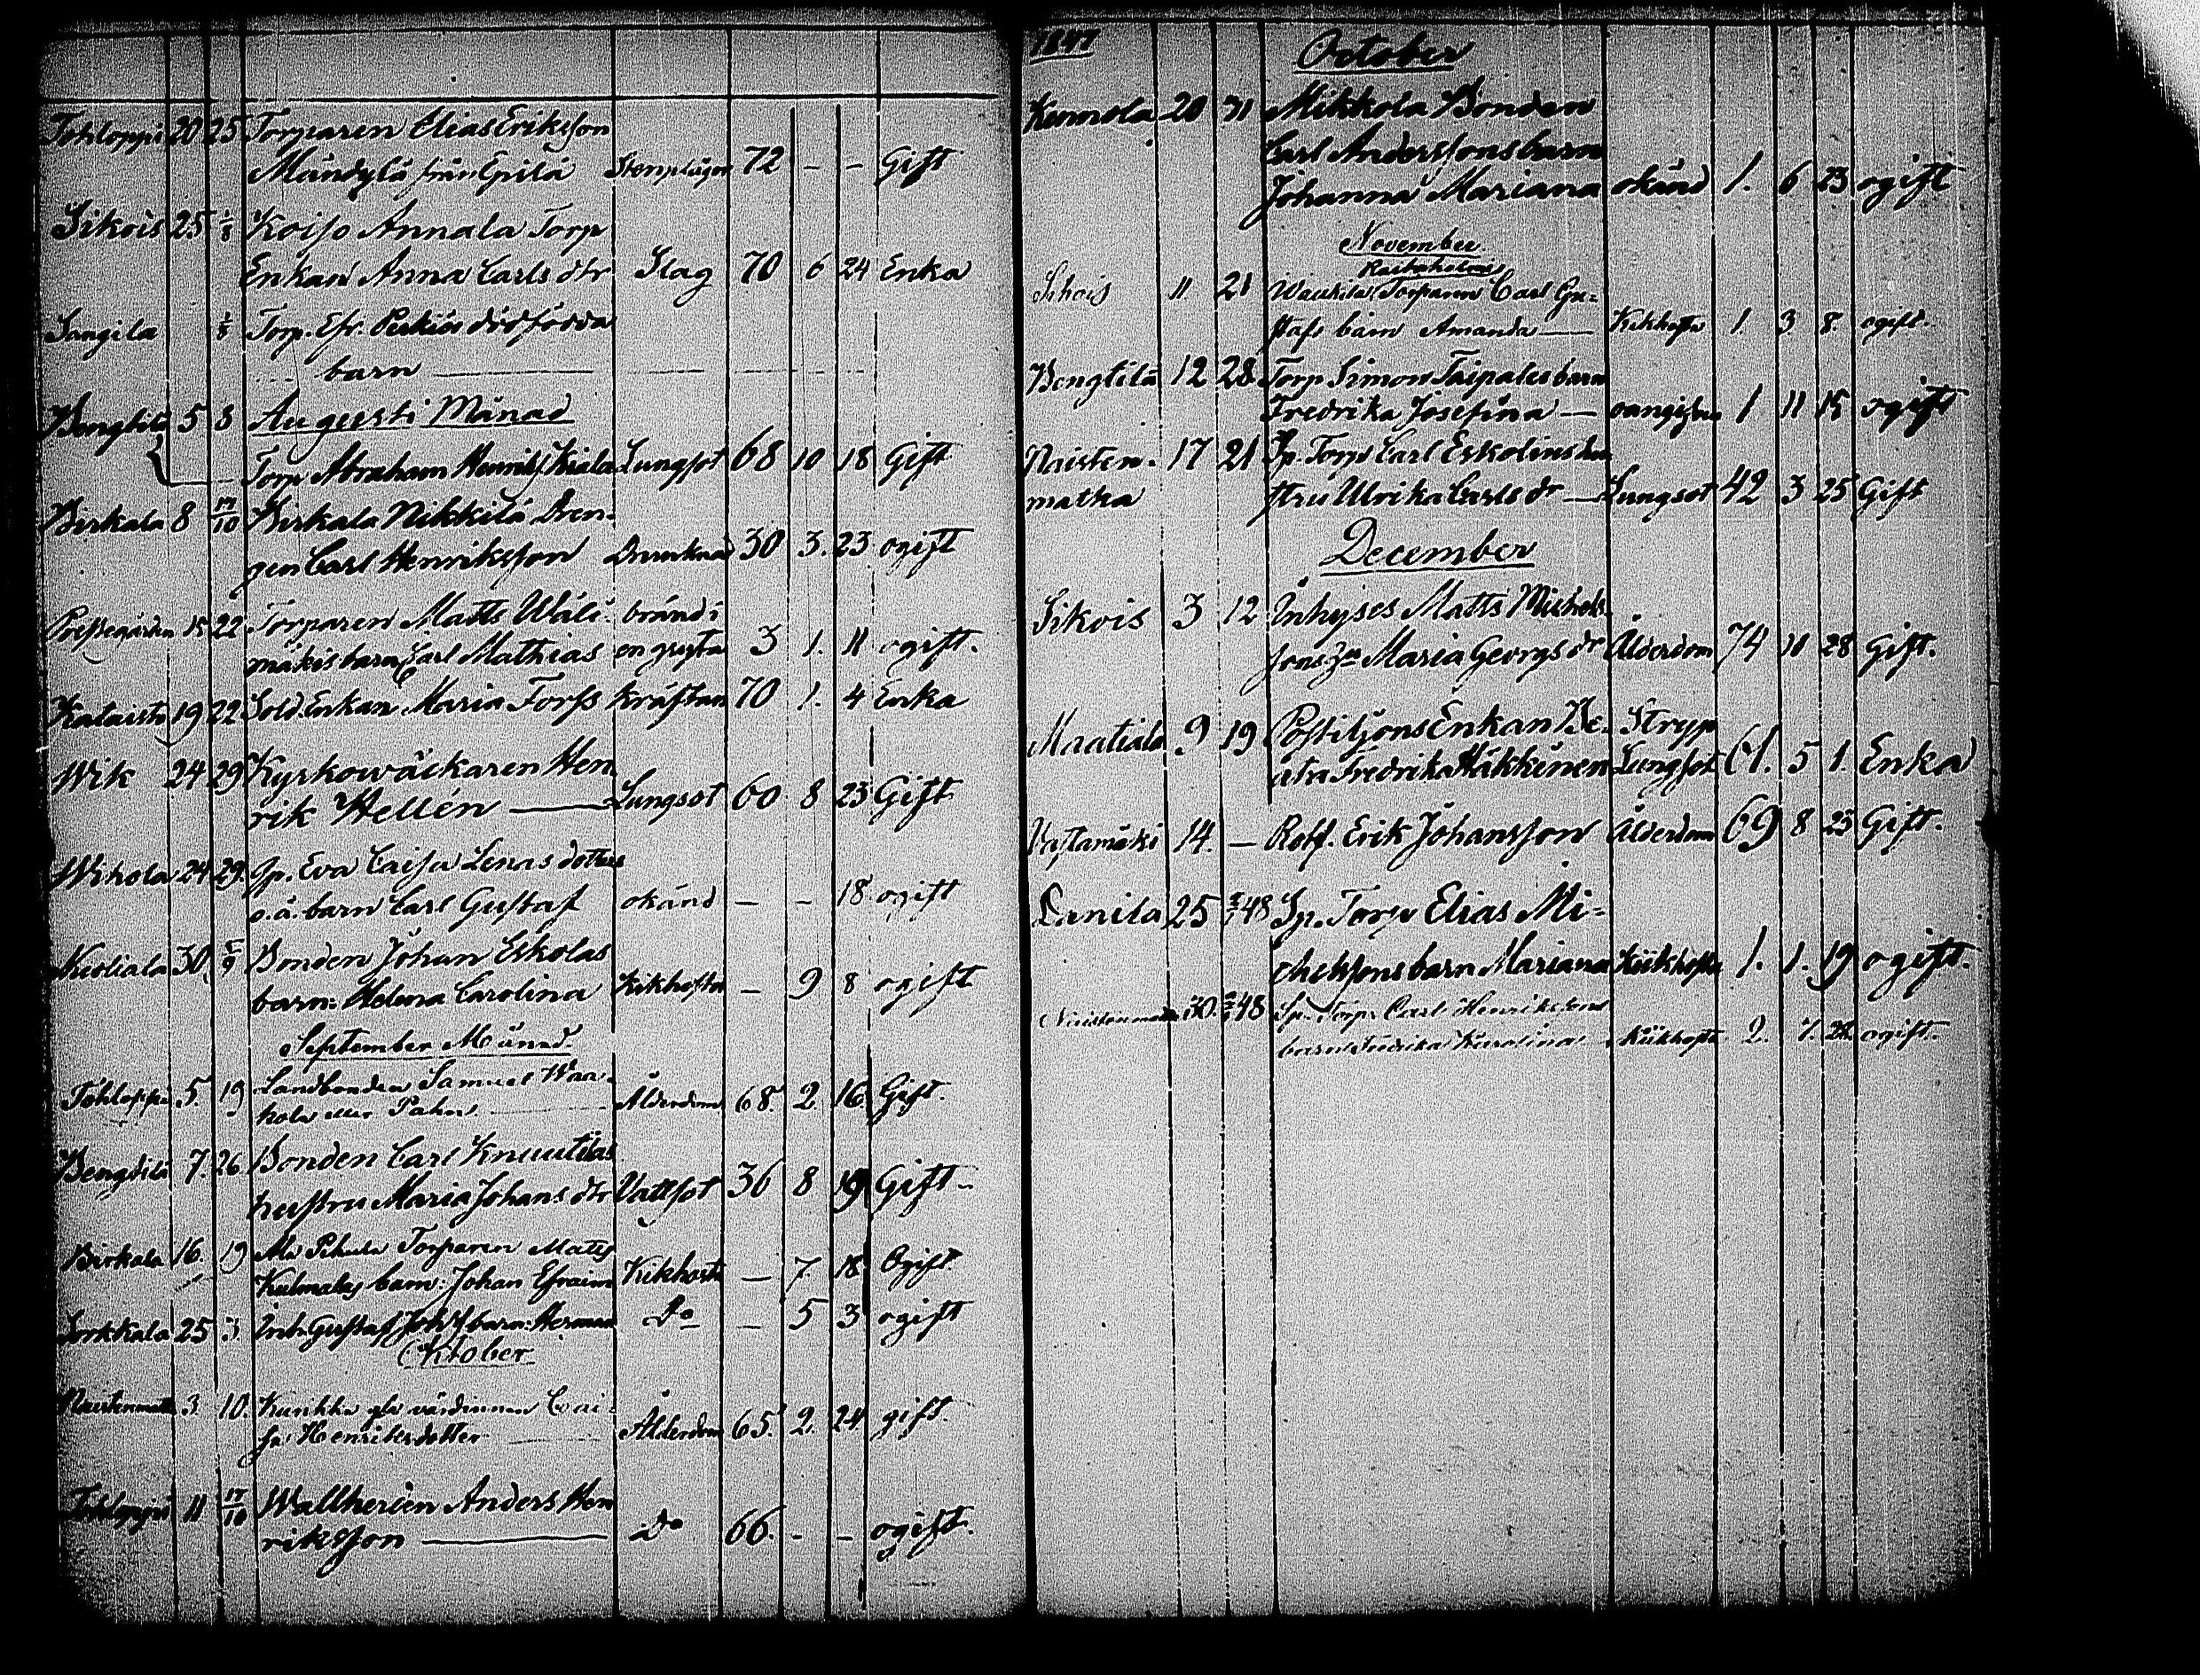 Tohloppi 20 25 Torparen Elias Eriksson
Mändylä från Epilä Stenplågor 72 - - Gift
Sikois 25 1/8 Koiso Annala Torp
Enkan Anna Carls dtr Slag 70 6 24 Enka
Sangila 1/8 Torp. Efr. dödfödda
barn
Bengtilä 5 8 Augusti Månad
Torp Abraham Henriks Kiala Lungsot 68 10 18 Gift
Birkala 8 17/10 Birkala Nikkilä Dren-
gen Carl Henriksson Drunknad 30 3. 23 ogift
Prestegården 15 22 Torparen Matts Wäli- bränd i
mäkis barn Carl Mathias en gryta 3 1. 11 ogift.
Kataisto 19 22 Sold. Enkan Maria Forss kräftan 70 1. 4 Enka
Wik 24 29 Kyrkowäckaren Hen
rik Hellén Lungsot 60 8 23 Gift
Wihola 24 29 Jp. Eva Caisa Lenas dotters
o.ä. barn Carl Gustaf okänd - - 18 ogift
Kuoliala 30 5/9 Bonden Johan Eskolas
barn: Helena Carolina Kikhosta - 9 8 ogift
September Månad
Tohloppi 5. 19 Landbonden Samuel Waa-
kola eller Palm Ålderdom 68. 2. 16 Gift.
Bengtilä 7. 26 Bonden Carl Knuutilas
hustru Maria Johans dtr Vattsot 36 8 19 Gift
Birkala 16. 19 Torparen Matts
Kulmalas barn: Johan Efraim Kikhosta - 7. 18 Ogift
Sorkkala 25 3. Inh. Gustaf Johss barn: Herman Do - 5 3 ogift
Oktober
Naistenmatka 3 10. Kurikka gla värdinnan Cai-
sa Henriksdotter Ålderdom 65. 2. 24. gift.
Tohloppi 11 17/10 Wallherien Anders Hen
riksson Do 66. - - ogift.
1847 October
Kennola 20 31 Mikkola Bonden
Carl Anderssons barn
Johanna Mariana okänd 1. 6 23 ogift
November
Sikois 11 21 Torparen Carl Gu=
stafs barn Amanda Kikhosta 1. 3 8. ogift.
Bengtilä 12 28 Torp Simon Taipales barn
Fredrika Josefina oangifven 1 11 15 ogift
Naisten- 17 21 Sp. Torp Carl Eskolins hu
matka stru Ulrika Carls dr Lungsot 42 3 25 Gift
December
Sikois 3 12 Inhyses Matts Michels
sons Maria Georgs dr Ålderdom 74 11 28 Gift.
Maatiala 9 19 Postiljons Enkan Be- Stryp
ata Fredrika Häkkinen Lungsot 61. 5 1. Enka
Vastamäki 14. - Rotf. Erik Johansson Ålderdom 69 8 25 Gift.
Lanila 25 48 Sp. Torp Elias Mi=
chelsons barn Mariana Kikhosta 1. 1. 19 ogift.
Naistenmatka 30. 48 Sp. Torp. Carl Henrikssons
barn Fredrika Karolina Kikhosta 2. 7. ogift.